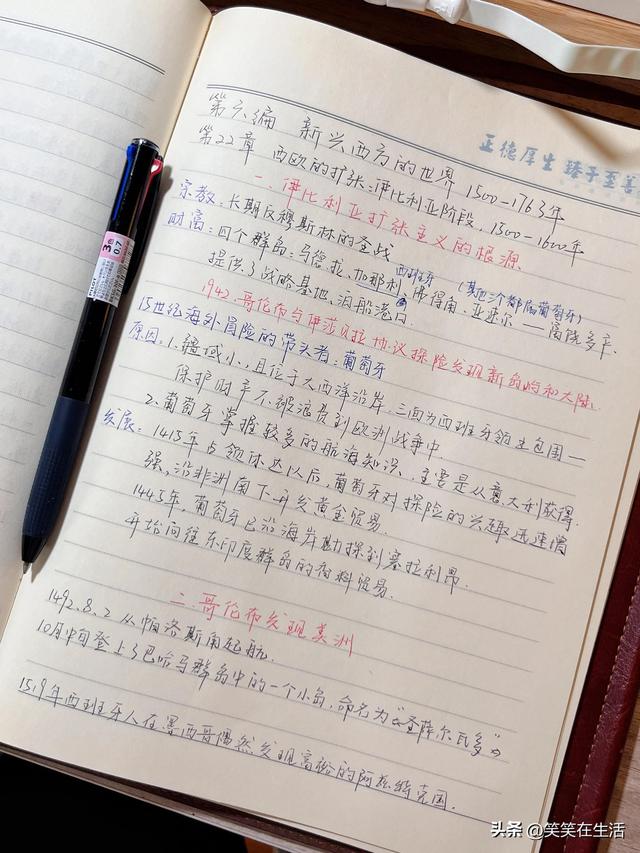 正德厚生 臻于至善
第六编 新兴西方的世界 1500-1763年
第22章 西欧的扩张:伊比利亚阶段, 1500-1600年
一、伊比利亚扩张主义的根源
宗教:长期反穆斯林的圣战
西班牙 (其他三个都属葡萄牙)
财富:四个群岛:马德拉、加那利、佛得角、亚速尔——富饶多产.
提供了战略基地、泊船港口
1942.哥伦布与伊莎贝拉协议探险发现新岛屿和大陆
15世纪海外冒险的带头者:葡萄牙
原因:1.疆域小,且位于大西洋沿岸,三面为西班牙领土包围—
保护财产不被浪费到欧洲战争中
2.葡萄牙掌握较多的航海知识,主要是从意大利获得.
发展:1415年占领休达以后,葡萄牙对探险的兴趣迅速增
强,沿非洲南下开发黄金贸易.
1445年,葡萄牙已沿海岸勘探到塞拉利昂.
开始向往东印度群岛的香料贸易.
二.哥伦布发现美洲
1492.8.2从帕洛斯角起航.
10月中旬登上了巴哈马群岛中的一个小岛,命名为“圣萨尔瓦多”
1519年西班牙人在墨西哥偶然发现富裕的阿兹特克国.
3色
0.7
头条 @笑笑在生活